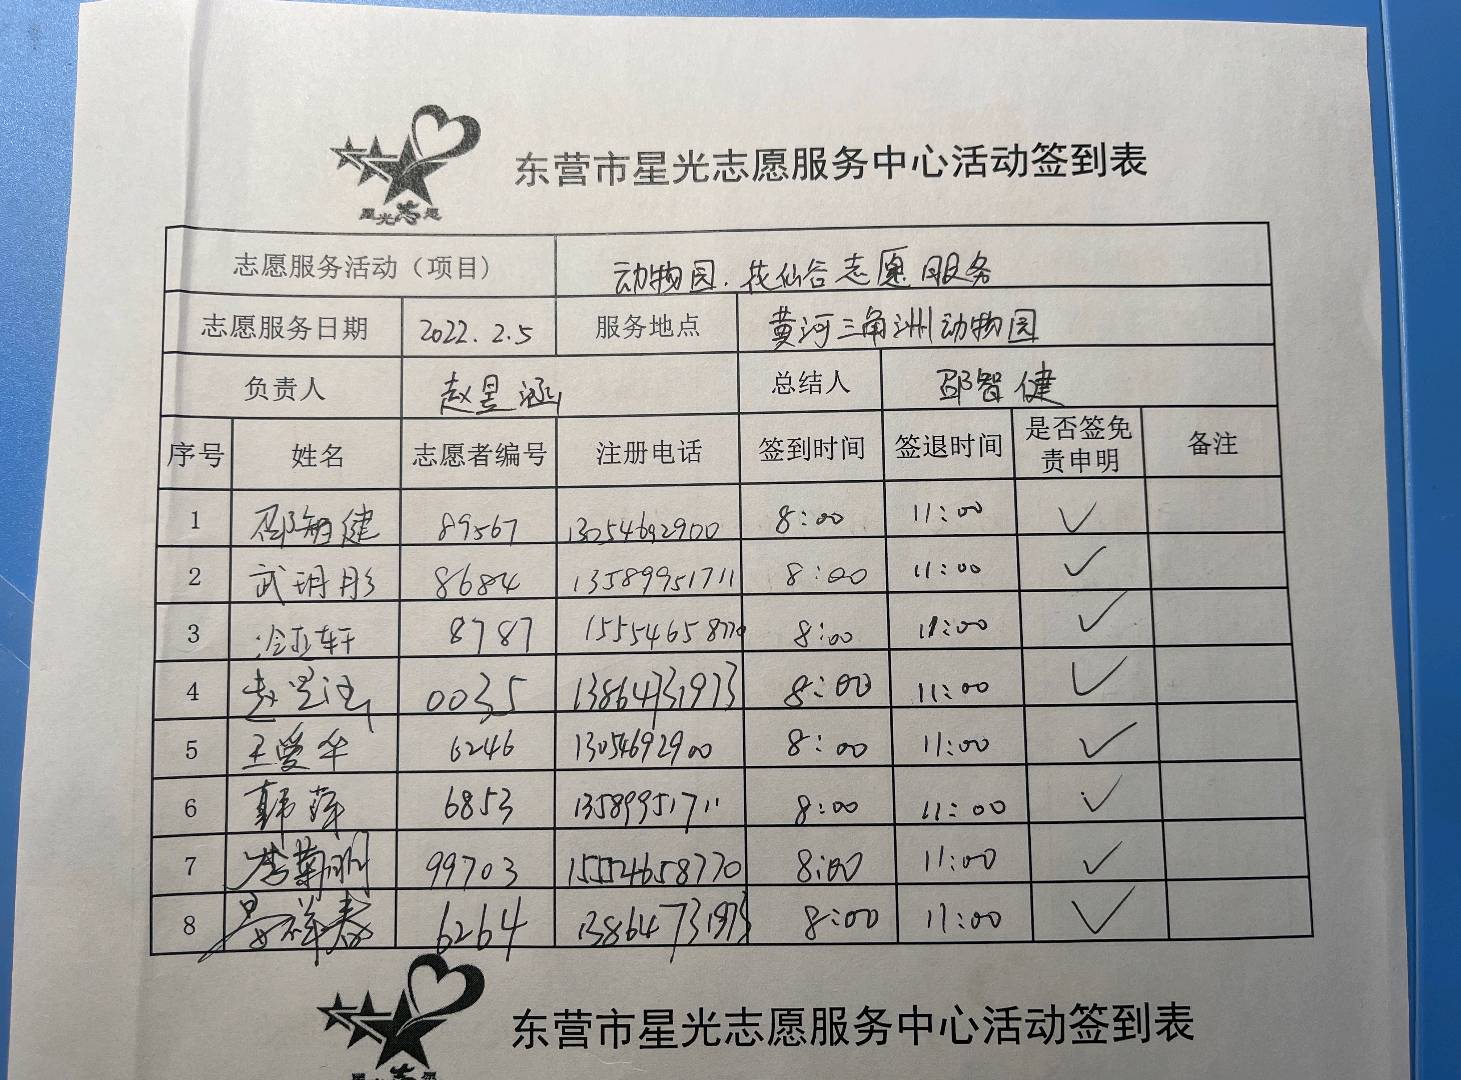 星光志愿
东营市星光志愿服务中心活动签到表
志愿服务活动（项目） 动物园.花仙谷志愿服务
志愿服务日期 2022.2.5 服务地点 黄河三角洲动物园
负责人 赵昱涵 总结人 邵智健
序号 姓名 志愿者编号 注册电话 签到时间 签退时间 是否签免责申明 备注
1 邵智健 89567 13054692900 8:00 11:00 ✓
2 武玥彤 8684 13589951711 8:00 11:00 ✓
3 8787 15554658770 8:00 11:00 ✓
4 赵昱涵 0035 13864731973 8:00 11:00 ✓
5 王爱华 6246 13054692900 8:00 11:00 ✓
6 韩萍 6853 13589951711 8:00 11:00 ✓
7 99703 15554658770 8:00 11:00 ✓
8 6264 13864731973 8:00 11:00 ✓
东营市星光志愿服务中心活动签到表